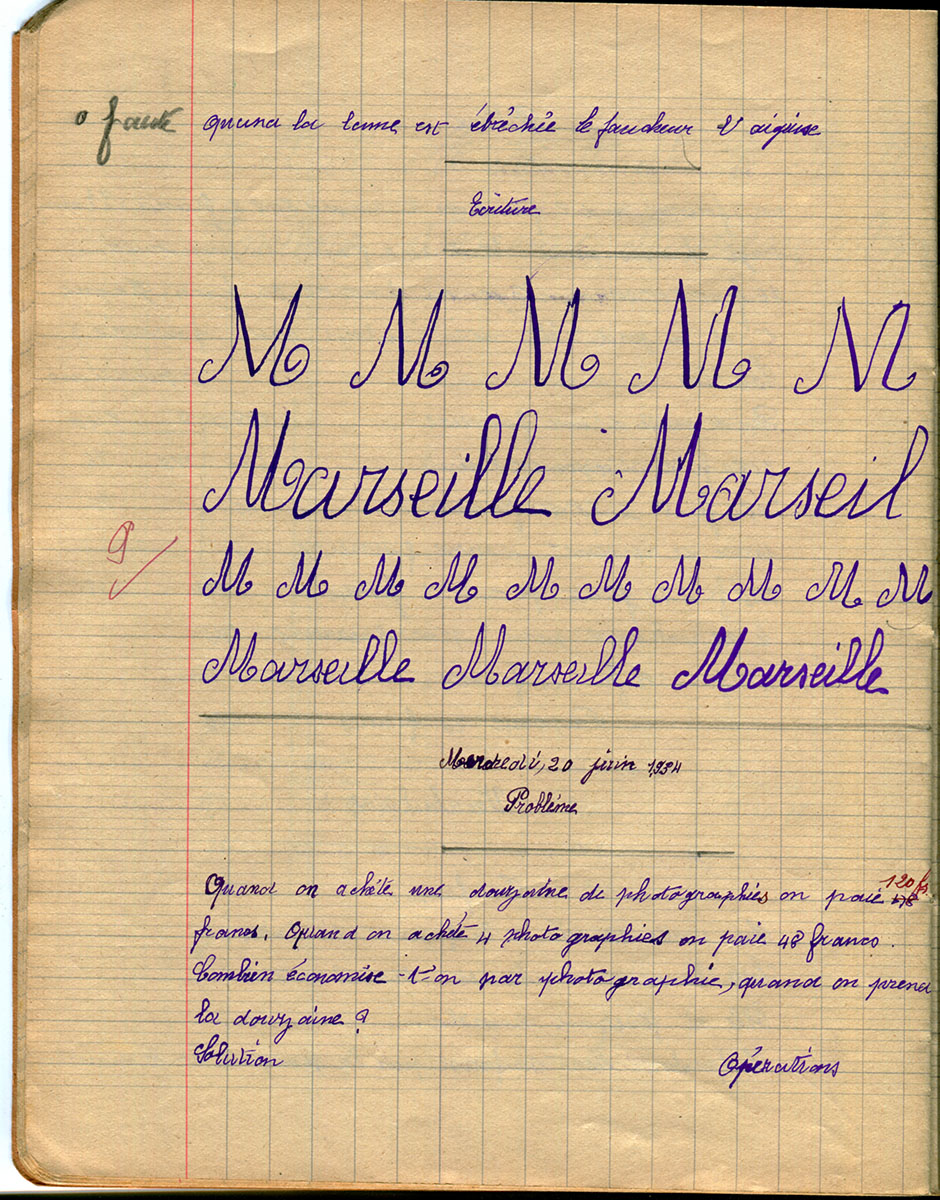 0 faute quand la lame est ébréchée le faucheur l'aiguise
Ecriture
M M M M M
Marseille Marseil
9
M M M M M M M M M M
Marseille Marseille Marseille
Mercredi, 20 juin 1934
Problème
Quand on achète une douzaine de photographies on paie 120 fs
francs. Quand on achète 4 photographies on paie 48 francs.
Combien économise-t'on par photographie, quand on prend
la douzaine ?
Solution Opérations